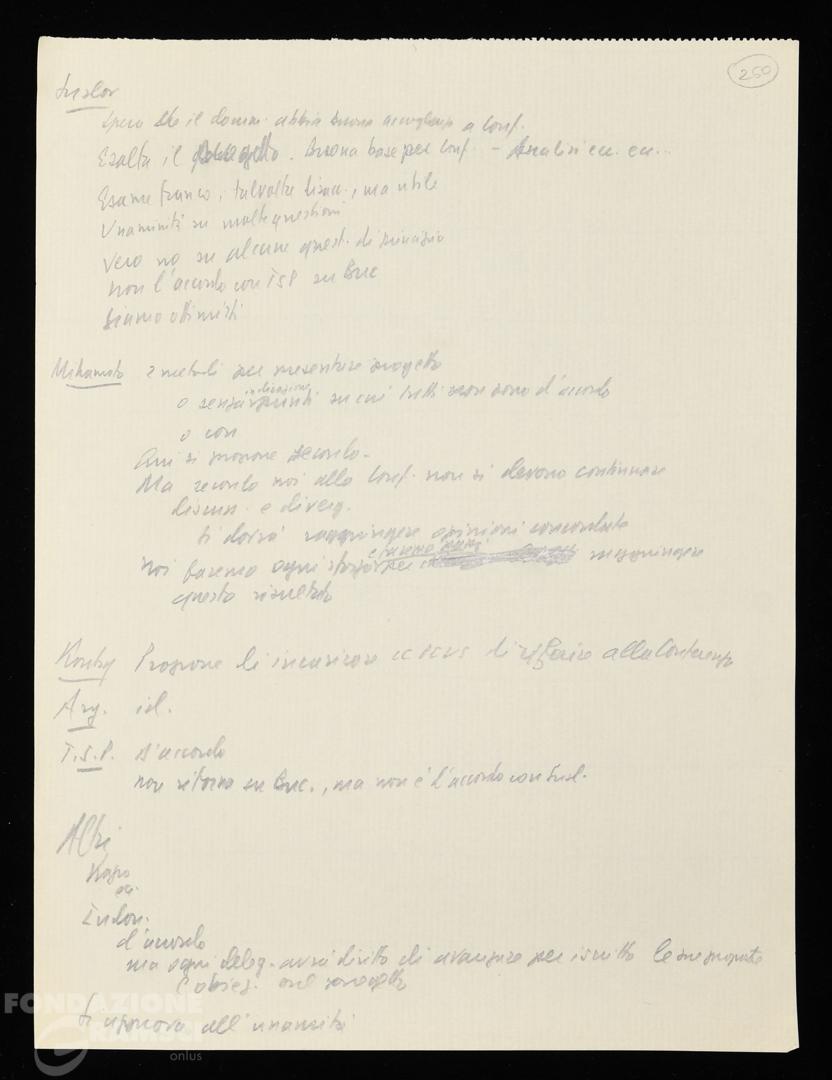 250
Suslov
Spero che il docum. abbia buona accoglienza a Conf.
Esalta il progetto. Buona base per Conf. - Analisi ecc. ecc...
Esame franco, talvolta, ma utile
Unanimità su molte questioni
Vero no su alcune quest. di principio
non d'accordo con TSP su Buc
Siamo ottimisti
Mihamoto 2 metodi per presentare progetto
o senza indicazione punti su cui tutti non sono d'accordo
o con
Qui si propone secondo.
Ma secondo noi alla Conf. non si devono continuare
discuss. e diverg.
Si dovrà raggiungere opinioni concordate
Noi faremo ogni sforzo per raggiungere
questo risultato
Propone di incaricare CC PCUS di riferire alla Conferenza
Arg. id.
T.S.P. D'accordo
non ritorno su Buc., ma non è d'accordo con Susl.
Altri
Indon.
d'accordo
ma ogni deleg. avrà diritto di avanzare per iscritto le sue proposte
e obiez. sul progetto
Si approva all'unanimità
FONDAZIONE
GRAMSCI
onlus